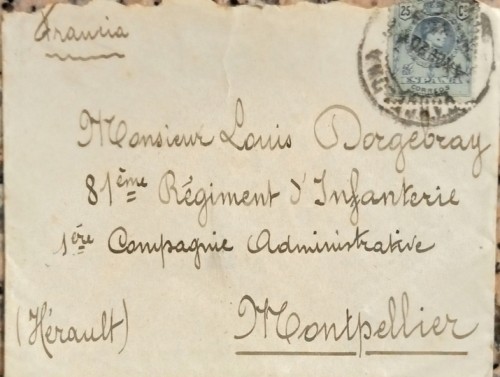 Francia
25
ESPAÑA
CORREOS
Monsieur Louis Dorgebray
81ème Régiment d'Infanterie
1ère Compagnie Administrative
(Hérault) Montpellier